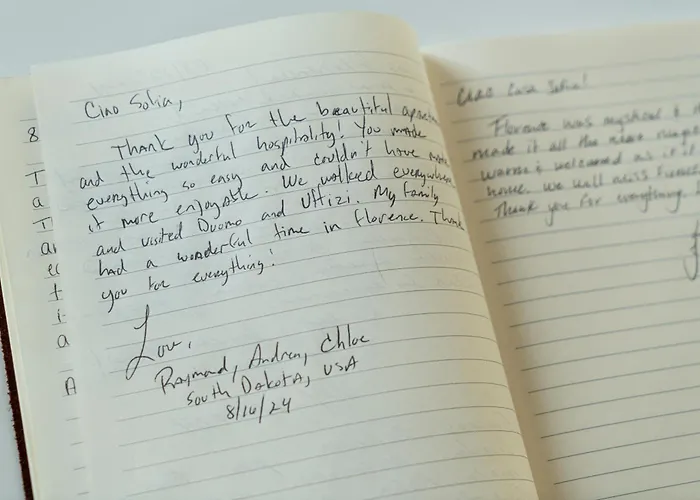 Ciao Sofia,
Thank you for the beautiful
and the wonderful hospitality! You made
everything so easy and couldn't have
it more enjoyable. We walked everywhere
and visited Duomo and Uffizi. My family
had a wonderful time in Florence. Thank
you for everything!
Love,
Raymond, Andrea, Chloe
South Dakota, USA
8/10/24
Ciao Casa Sofia!
Florence was mystical &
made it all the more
warm & welcomed as if
home. We will miss
Thank you for everything.